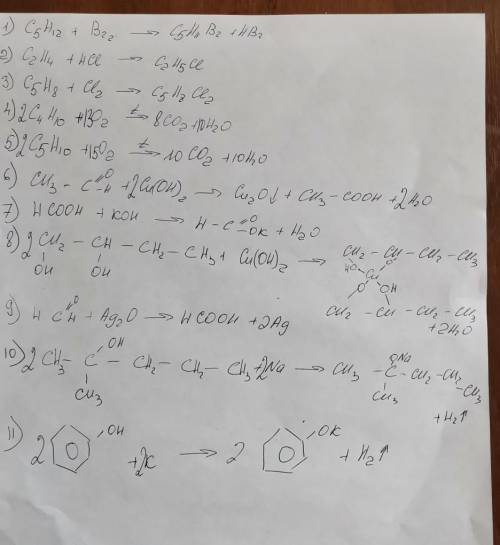 1) C5H12 + Br2 → C5H11Br + HBr
2) C2H4 + HCl → C2H5Cl
3) C5H8 + Cl2 → C5H8Cl2
4) 2C4H10 + 13O2 t→ 8CO2 + 10H2O
5) 2C5H10 + 15O2 t→ 10CO2 + 10H2O
6) CH3 - C =O -H + 2Cu(OH)2 → Cu2O↓ + CH3 - COOH + 2H2O
7) HCOOH + KOH → H - C =O -OK + H2O
8) 2CH2 - CH - CH2 - CH3 + Cu(OH)2 → CH2 - CH - CH2 - CH3
OH OH HO O
Cu
O OH
CH2 - CH - CH2 - CH3
+ 2H2O
9) H C =O -H + Ag2O → HCOOH + 2Ag
10) 2CH3 - C - CH2 - CH2 - CH3 + 2Na → CH3 - C - CH2 - CH2 - CH3
OH ONa
CH3 CH3
+ H2↑
11) 2 OH + 2K → 2 OK + H2↑